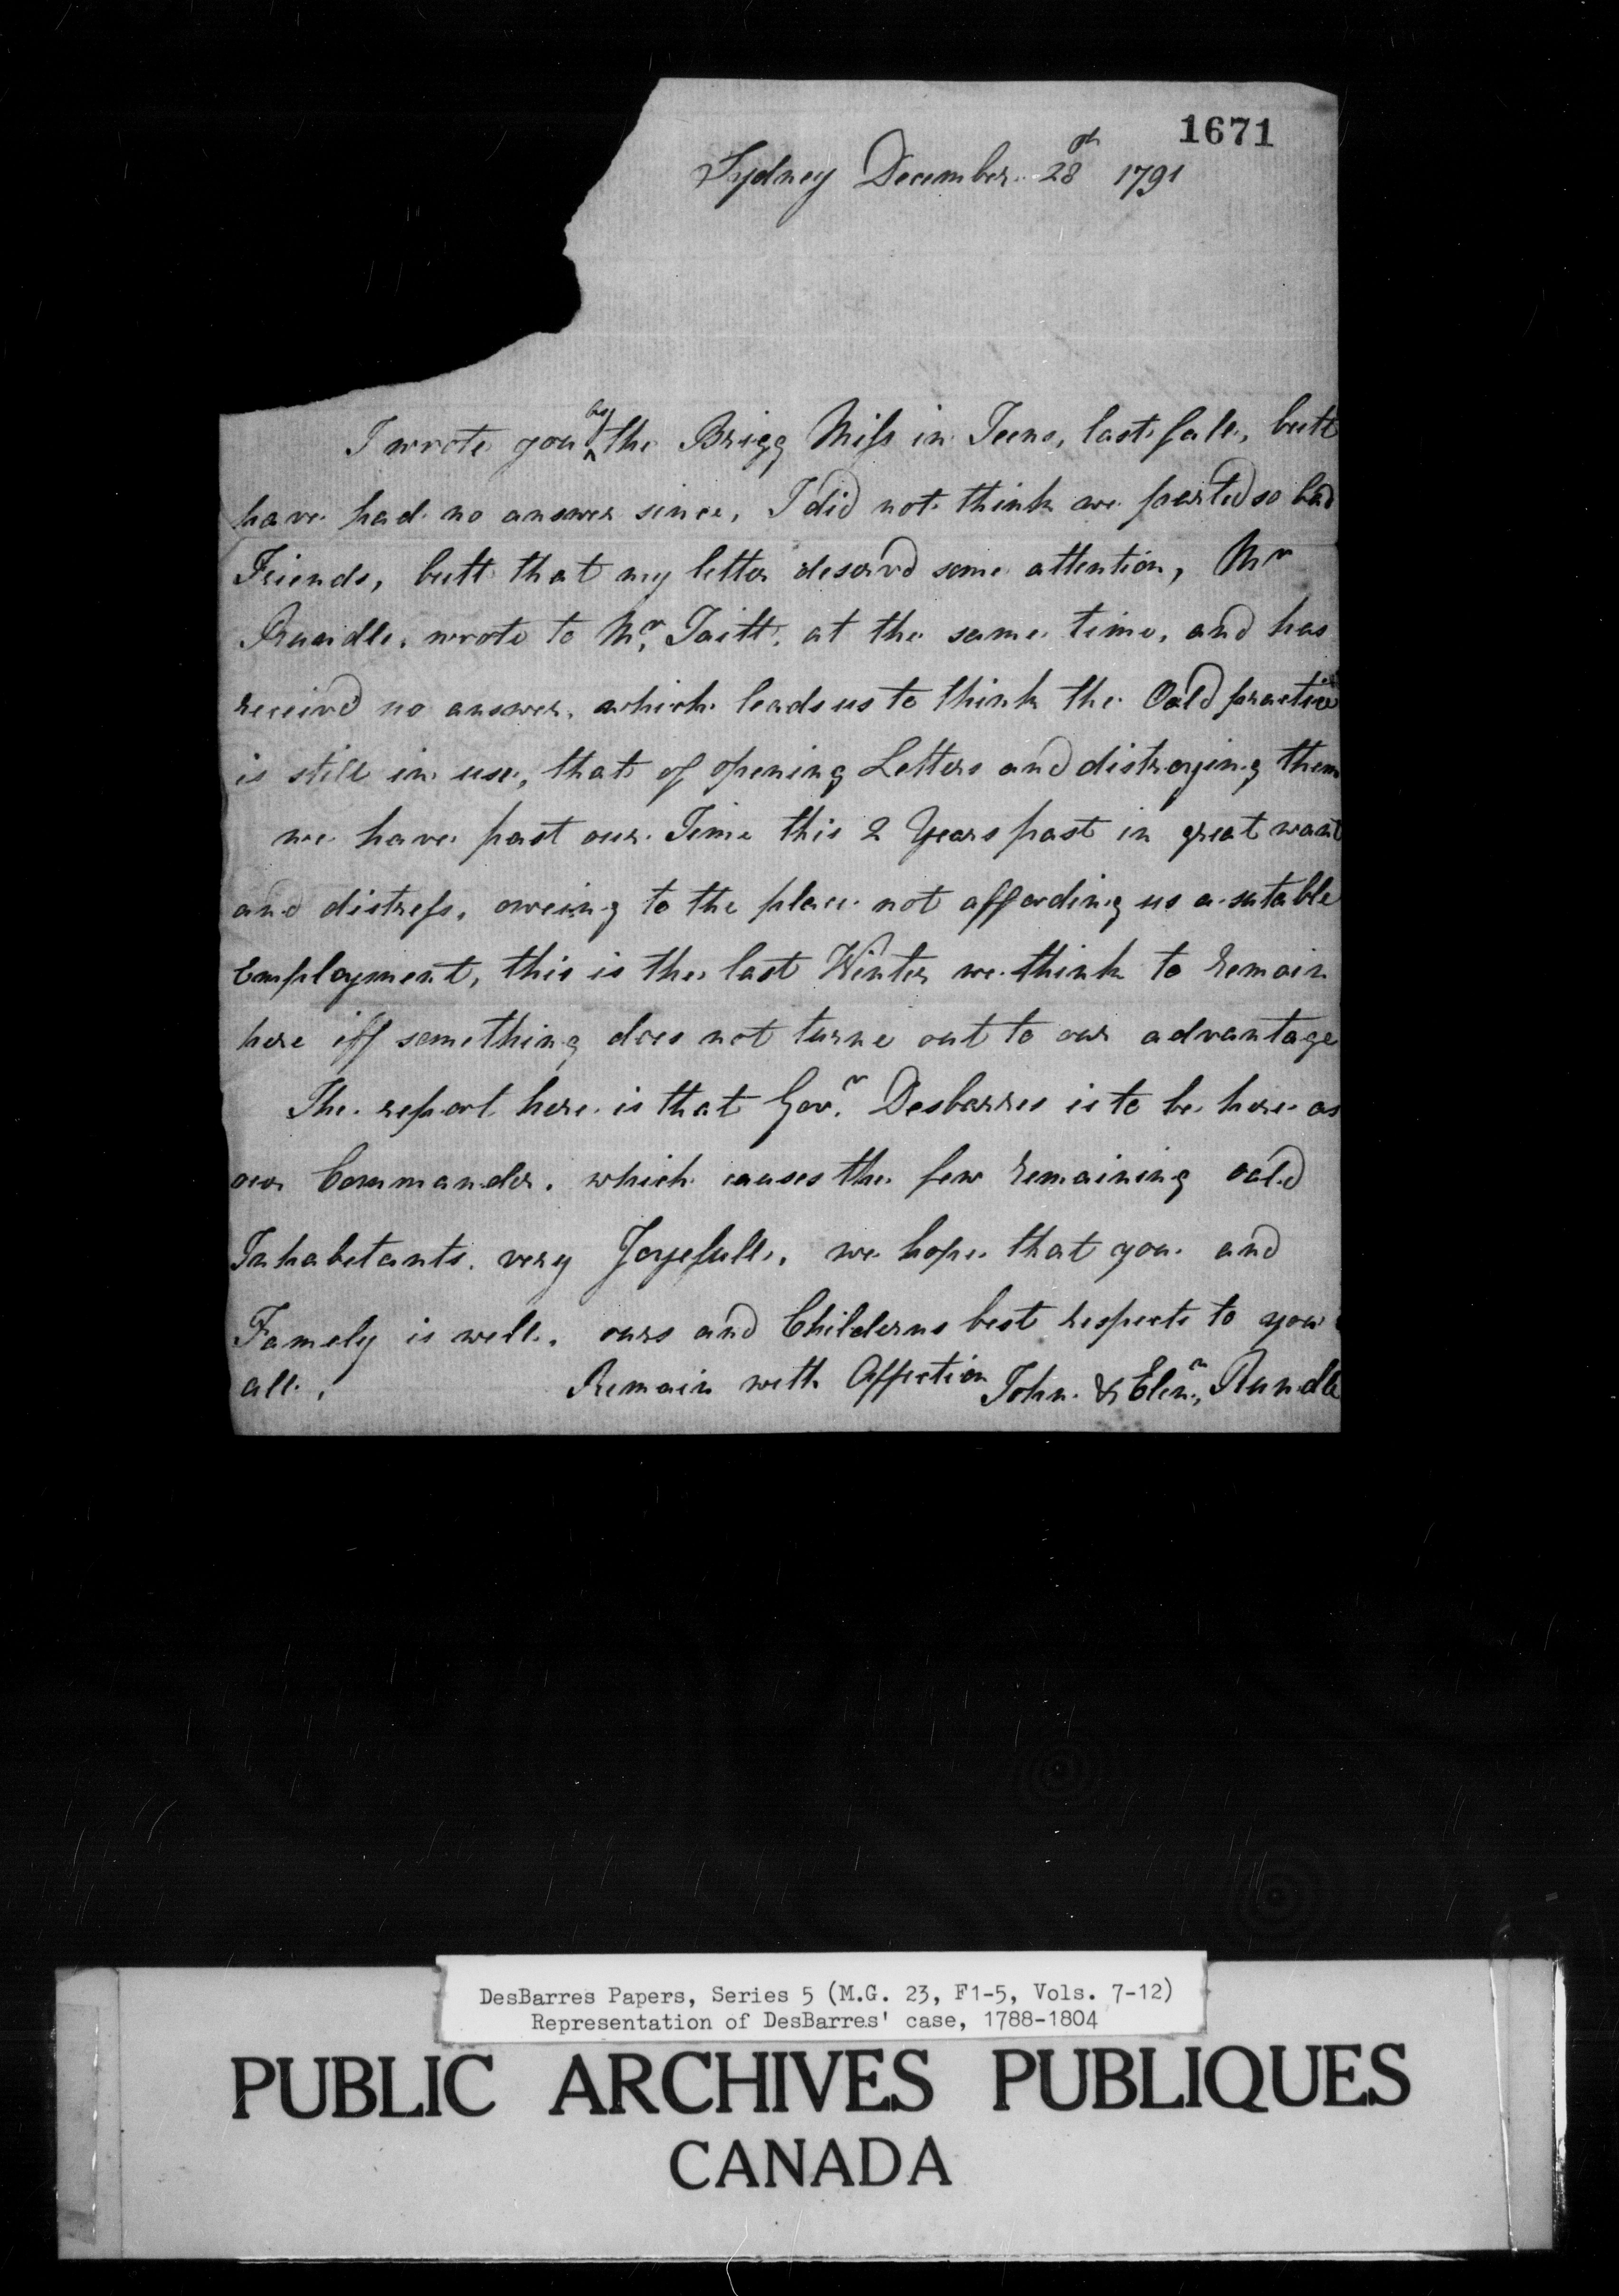 1671
Sydney December 28th 1791
I wrote you by the Brigg Miss in Teens, last fall, butt
have had no answer since, I did not think we parted so bad
Friends, butt that my letter deservd some attention, Mr
Rundle, wrote to Mr. Taitt, at the same time, and has
receivd no answer, which leads us to think the Oald practice
is still in use, that of opening Letters and distroying them
we have past our Time this 2 Years past in great want
and distress, oweing to the place not affording us a sutable
Employment, this is the last Winter we think to Remain
here iff something does not turne out to our advantage
The report here is that Govr. Desbarres is to be here as
our Commander, which causes the few Remaining oald
Inhabetants very Joyefull, we hope that you and
Famely is well, ours and Childerns best respects to you
all, Remain with Affection John & Elenr. Rundle
DesBarres Papers, Series 5 (M.G. 23, F1-5, Vols. 7-12)
Representation of DesBarres' case, 1788-1804
PUBLIC ARCHIVES PUBLIQUES
CANADA